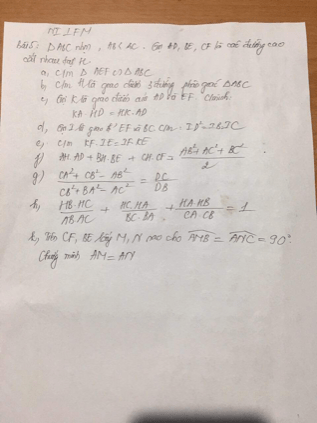 Bài 5: Δ ABC nhọn, AB < AC. Gọi AD, BE, CF là các đường cao
cắt nhau tại H.
a, c/m Δ AEF ∽ Δ ABC
b, c/m H là giao điểm 3 đường phân giác Δ
c, Gọi K là giao điểm của AD và EF. C/minh:
KA.HD = HK.AD
d, Gọi I là giao EF và BC. C/m: = IB.IC
e, c/m KF.IE = IF.KE
f) AH.AD + BH.BE + CH.CF = \frac{AB² + AC² + BC²}{2}
g) \frac{CA² + CB² - AB²}{CB² + BA² - AC²} = \frac{DC}{DB}
h, \frac{HB.HC}{AB.AC} + \frac{HC.HA}{BC.BA} + \frac{HA.HB}{CA.CB} = 1
k, Trên CF, BE lấy M, N sao cho \widehat{AMB} = \widehat{ANC} = 90°
Chứng minh AM = AN